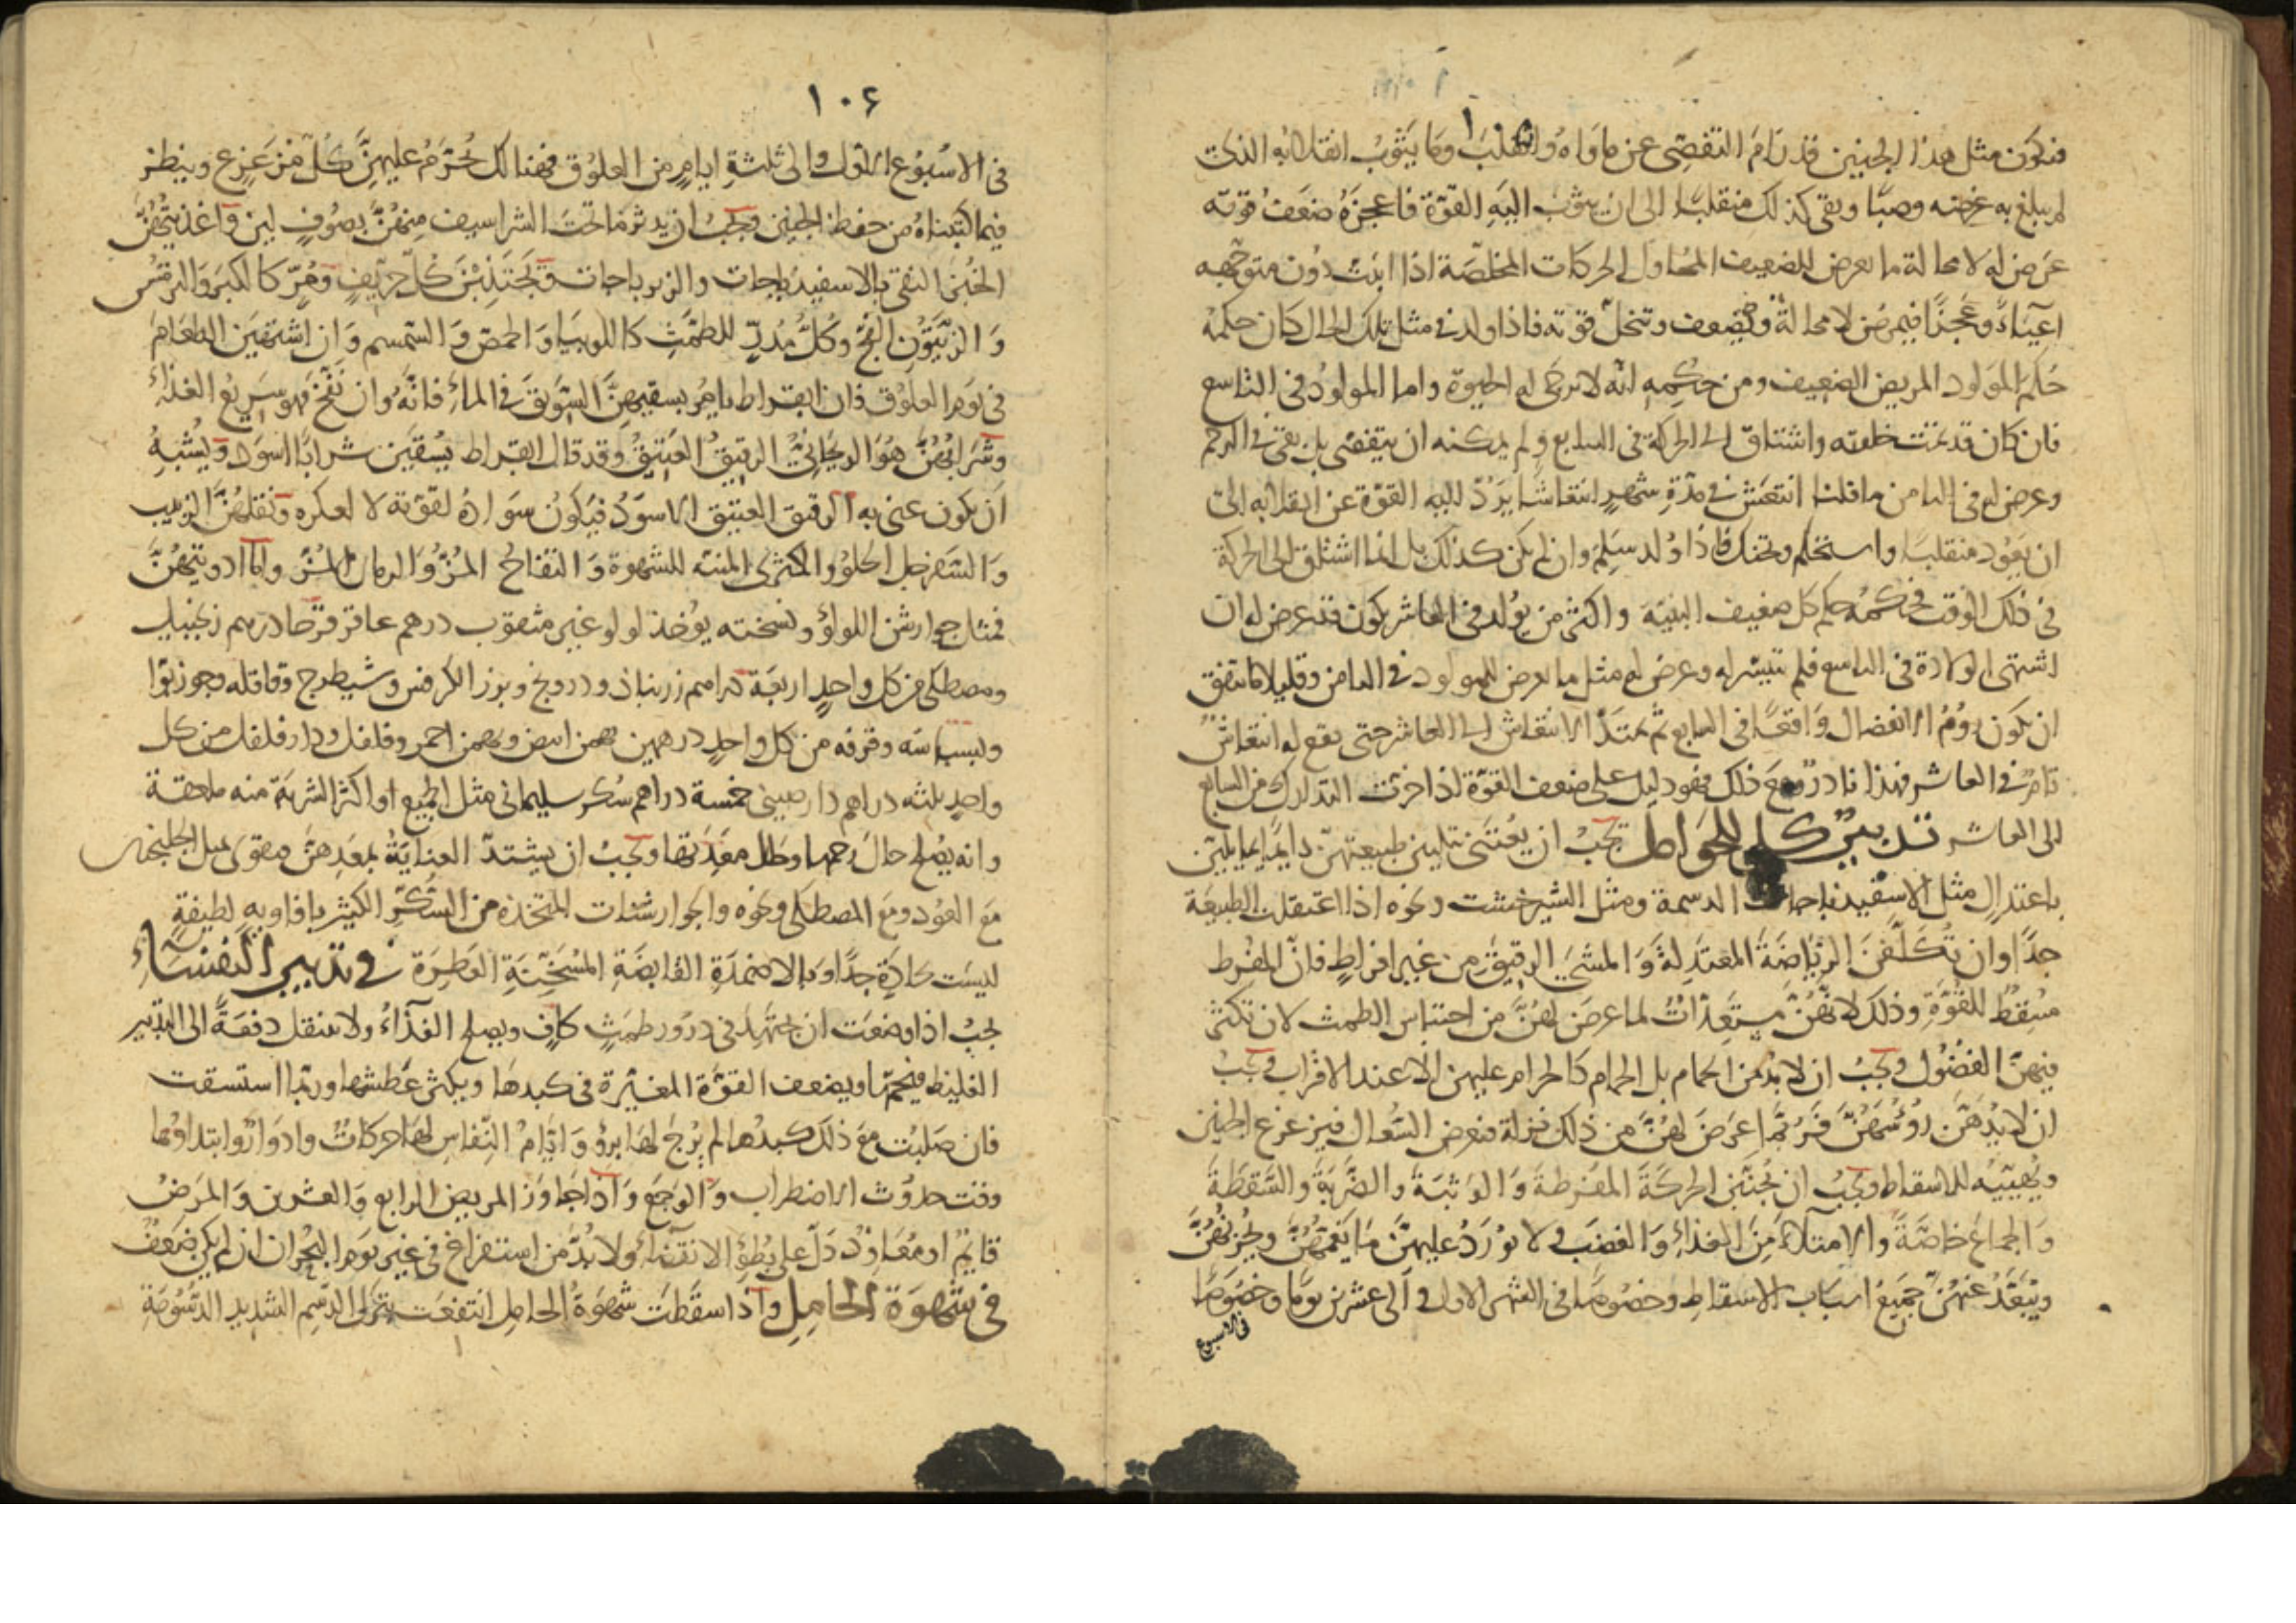 ١٠٥
فيكون مثل هذا الجنين قد رام التفصى عن ماواه وانقلب وما يثوب انقلابه الذى
لم يبلغ به غرضه وصبا وبقى كذلك منقلبا الى ان يثوب اليه القوة فاعجزه ضعف قوته
عرض له لا محالة ما يعرض للضعيف المحاول الحركات المخلصة اذا انبت دون متوجهه
اعياءً وعجزًا فيمرض لا محالة ويضعف وتنحل قوته فاذا ولد فى مثل تلك الحال كان حكمه
حكم المولود المريض الضعيف ومن حكمه انه لا يرجى له الحيوة واما المولود فى التاسع
فان كان قد تمت خلقته واشتاق الى الحركة فى السابع ولم يمكنه ان يتفصى بل بقى فى الرحم
وعرض له فى الثامن ما قلنا انتعش فى مدة شهر انتعاشا يرد اليه القوة عن انقلابه الى
ان يعود منقلبا واستحكم وتحنك فاذا ولد سلم وان لم يكن كذلك بل انما اشتاق الى الحركة
فى ذلك الوقت فحكمه حكم كل ضعيف البنية واكثر من يولد فى العاشر يكون قد عرض له ان
اشتهى الولادة فى التاسع فلم تتيسر له وعرض له مثل ما يعرض للمولود فى الثامن وقليلا ما يتفق
ان يكون روم الانفصال واقعا فى السابع ثم يمتد الانتعاش الى العاشر حتى يقع له انتعاش
تام فى العاشر فهذا نادر ومع ذلك فهو دليل على ضعف القوة اذا اخرت التدارك من السابع
الى العاشر تدبير كلى للحوامل يجب ان يعتنى بتليين طبيعتهن دايما بما يلين
باعتدال مثل الاسفيدباجات الدسمة ومثل الشيرخشت ونحوه اذا اعتقلت الطبيعة
جدا وان تكلفن الرياضة المعتدلة والمشى الرقيق من غير افراط فان المفرط
مسقط للقوة وذلك لانهن مستعدات لما عرض لهن من احتباس الطمث لان تكثر
فيهن الفضول ويجب ان لا يدمن الحمام بل الحمام كالحرام عليهن الا عند الاقراب ويجب
ان لا يدهن رؤسهن فربما عرض لهن من ذلك نزلة فيعرض السعال فيزعزع الجنين
ويهييه للاسقاط ويجب ان يجتنبن الحركة المفرطة والوثبة والضربة والسقطة
والجماع خاصة والامتلاء من الغذاء والغضب ولا يورد عليهن ما يغمهن ويحزنهن
ويبعد عنهن جميع اسباب الاسقاط وخصوصا فى الشهر الاول والى عشرين يوما وخصوصا
فى الاسبوع
١٠٦
فى الاسبوع الاول والى ثلثة ايام من العلوق فهنالك يحرم عليهن كل مزعزع وينظر
فيما كتبناه من حفظ الجنين ويجب ان يدثر ما تحت الشراسيف منهن بصوف لين واغذيتهن
الخبز النقى بالاسفيدباجات والزيرباجات ويجتنبن كل حريف ومر كالكبر والترمس
والزيتون الفج وكل مدر للطمث كاللوبيا والحمص والسمسم وان اشتهين الطعام
فى يوم العلوق فان ابقراط يامر بسقيهن السويق فى الماء فانه وان نفخ فهو سريع الغذاء
وشرابهن هو الريحانى الرقيق العتيق وقد قال ابقراط يسقين شرابا اسود ويشبه
ان يكون عنى به الرقيق العتيق الاسود فيكون سواده لقوته لا لعكره ونقلهن الزبيب
والسفرجل الحلو والكمثرى المنبه للشهوة والتفاح المز والرمان المز واما ادويتهن
فمثل جوارشن اللولؤ ونسخته يوخذ لولو غير مثقوب درهم عاقر قرحا درهم زنجبيل
ومصطكى من كل واحد اربعة دراهم زرنباذ ودرونج وبزر الكرفس وشيطرج وقاقله وجوزبوا
وبسباسه وقرفه من كل واحد درهمين بهمن ابيض وبهمن احمر وفلفل ودارفلفل من كل
واحد ثلثه دراهم دارصينى خمسة دراهم سكر سليمانى مثل الجميع او اكثر الشربة منه ملعقة
وانه يصلح حال رحمها وحال معدتها ويجب ان يشتد العناية بمعدهن ويقوى بمثل الجلنجبين
مع العود ومع المصطكى ونحوه والجوارشنات المتخذه من السكر الكثير بافاويه لطيفة
ليست حادة جدا وبالاضمدة القابضة المسخنة العطرة فى تدبير النفساء
يجب اذا وضعت ان يجتهد فى درور طمث كاف ويصلح الغذاء ولا تنتقل دفعة الى التدبير
الغليظ فيحم ويضعف القوة المغيرة فى كبدها ويكثر عطشها وربما استسقت
فان صلبت مع ذلك كبدها لم يرج لها برؤ وايام النفاس لها حركات وادوار وابتداؤها
وقت حدوث الاضطراب والوجع واذا جاوز المريض الرابع والعشرين والمرض
قايم او معاود دل على بطؤ الانقضاء ولا بد من استفراغ فى غير يوم البحران ان لم يكن ضعف
فى شهوة الحامل واذا سقطت شهوة الحامل انتفعت بترك الدسم الشديد الدسومة